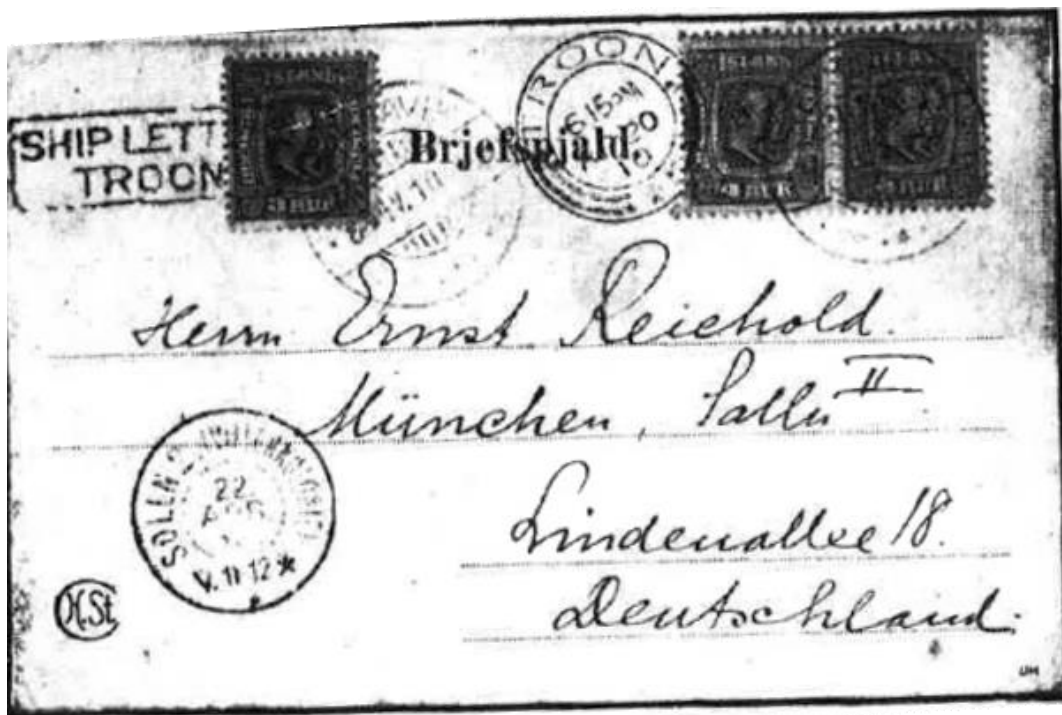 SHIP LETT
TROON
Brjefspjald.
TROON
6 15 PM
20
10
ISLAND
ISLAND
ISLAND
Herrn Ernst Reichold.
München, Solln II
Lindenallee 18.
Deutschland.
SOLLN 2
22
APR
V. 11-12
H.St.